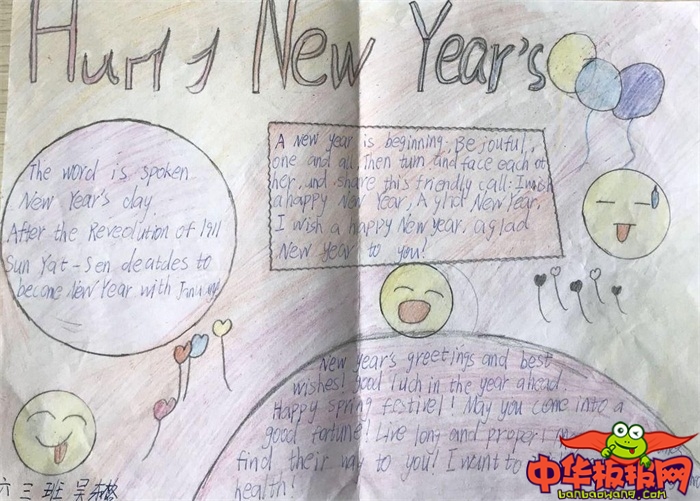 Hurly New Year's
The word is spoken
New Year's day
After the Reveolution of 1911
Sun Yat-Sen deatdes to
become New Year with
A New year is beginning. Be jouful,
one and all, Then turn und face each ot
her, und share this friendly call: I wish
a happy New Year, A glad New Year,
I wish a happy New Year, a glad
New Year to you!
New year's greetings and best
wishes! good luch in the year ahead.
Happy spring festivel! May you come into a
good fortune! Live long and properi
find their way to you! I want to
health!
六三班 吴
中华板报网
banbaowang.com